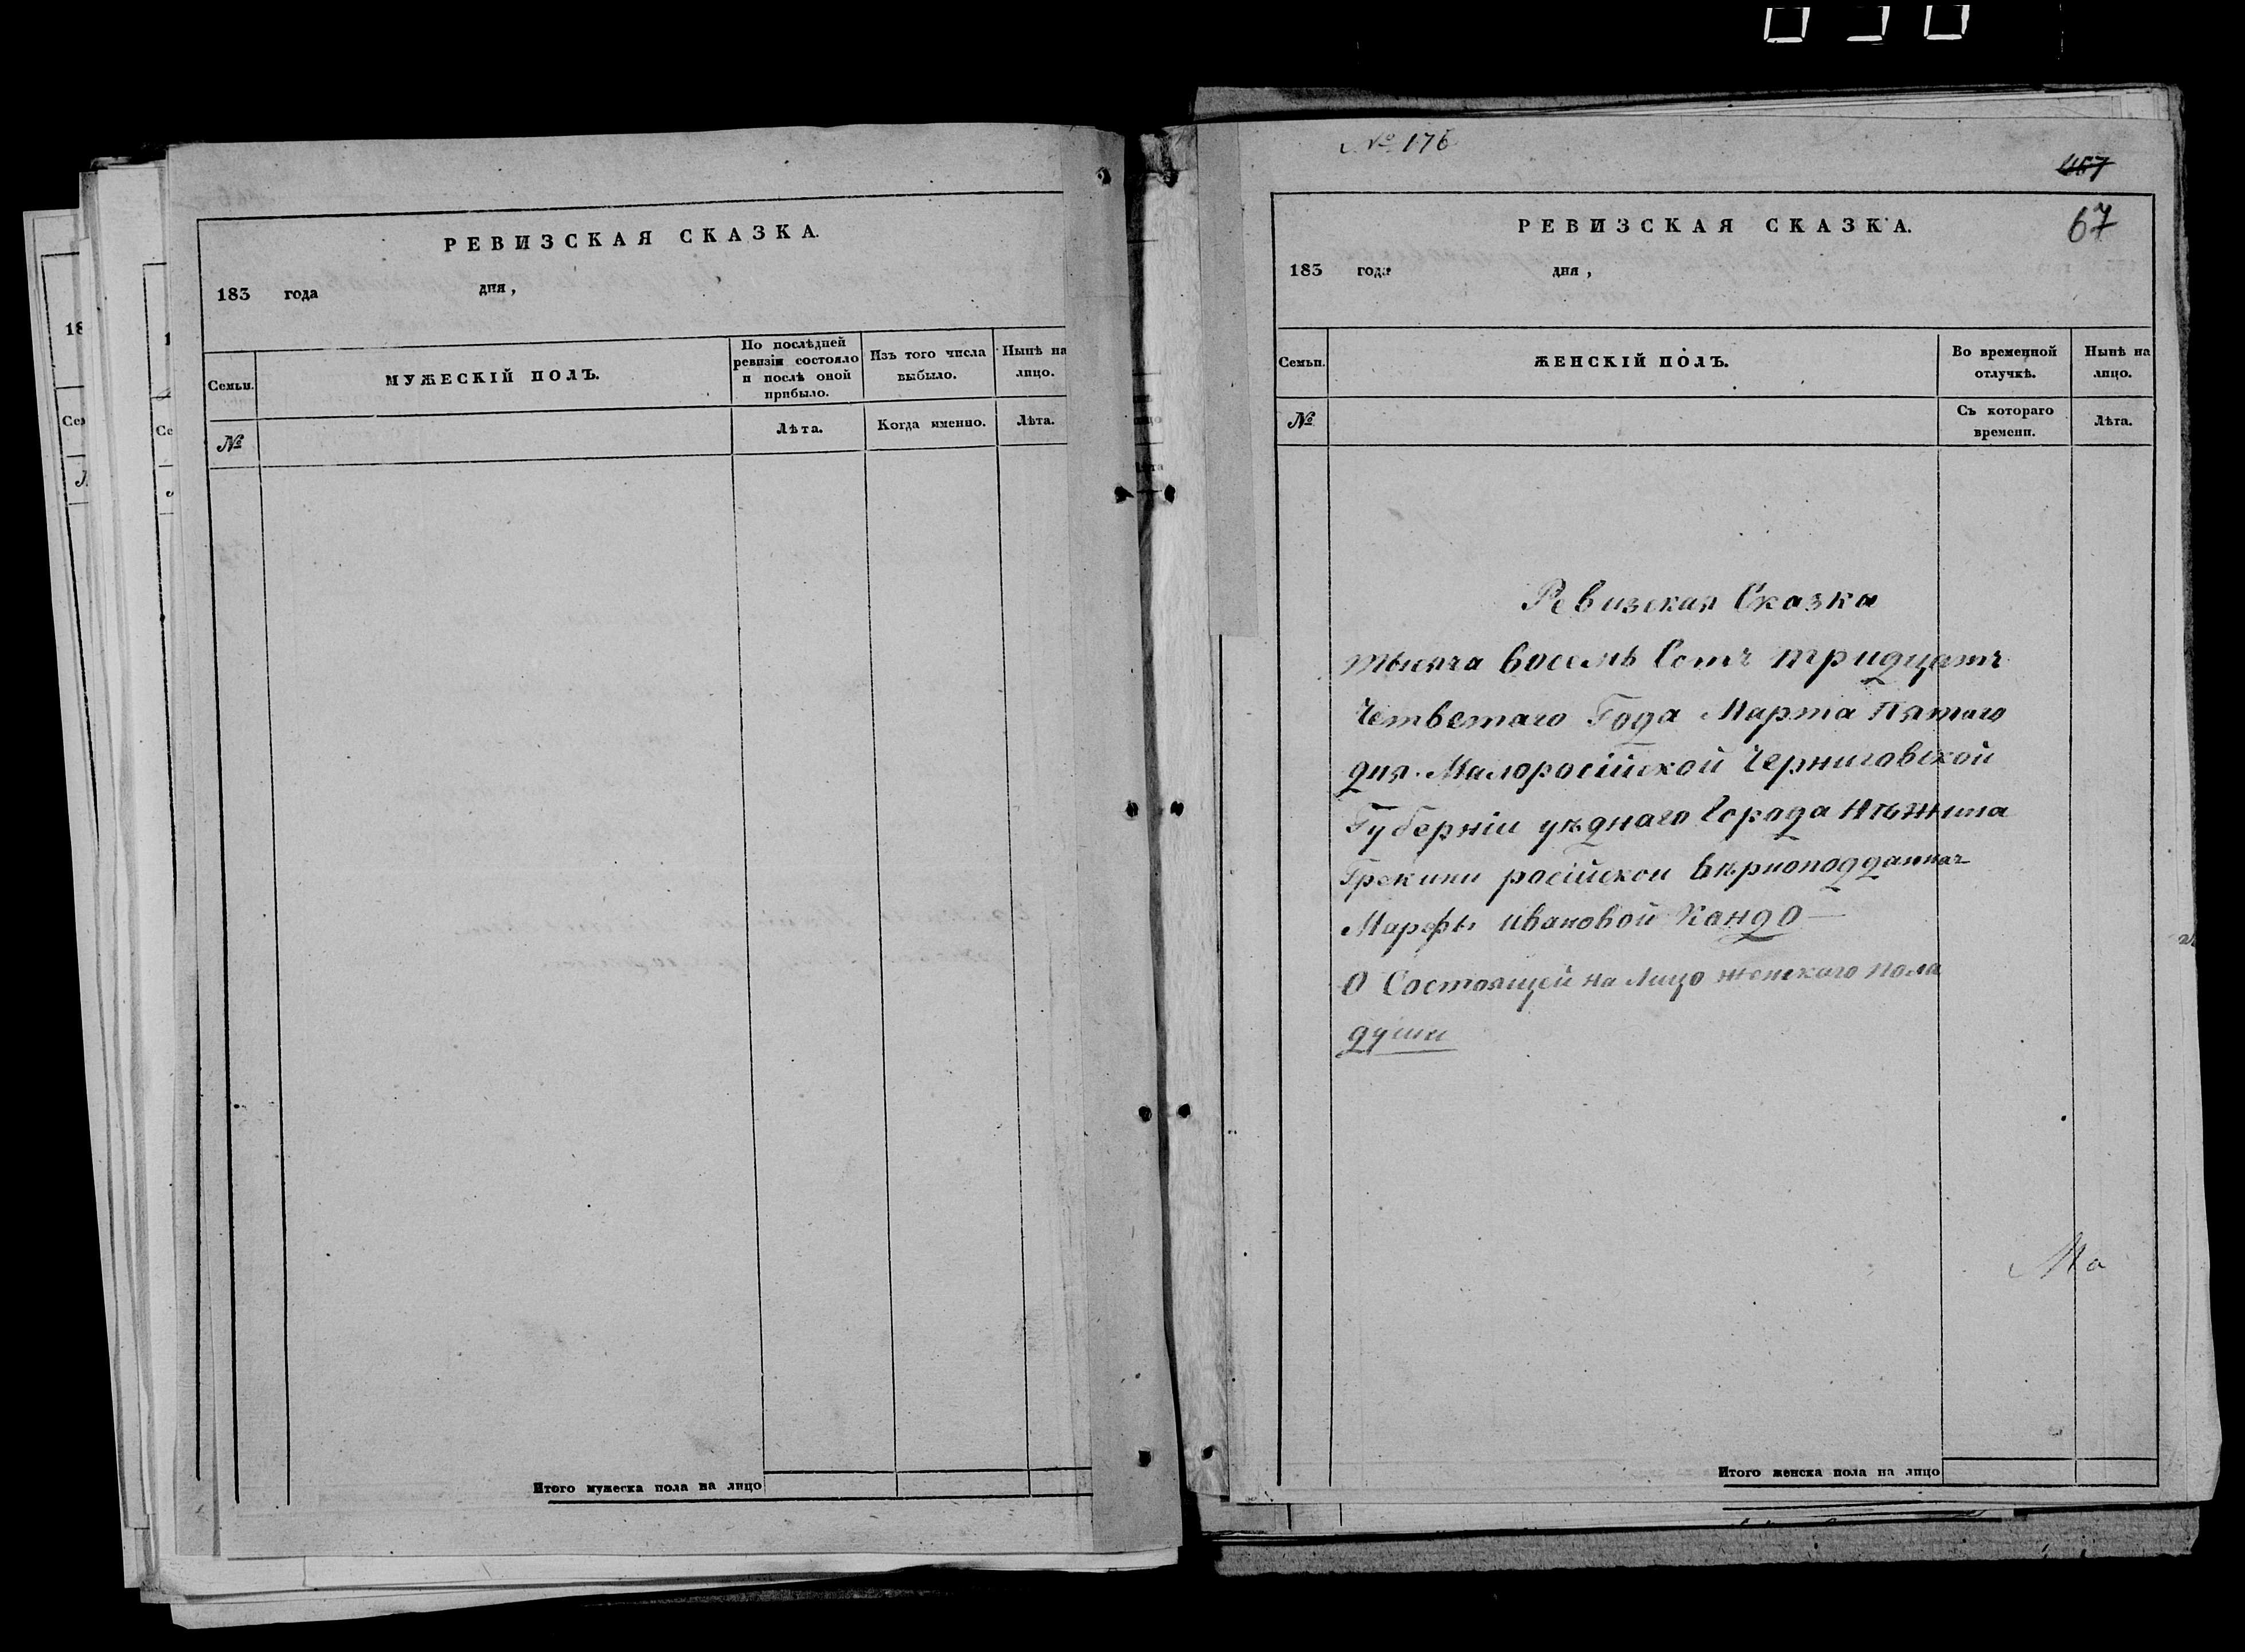 РЕВИЗСКАЯ СКАЗКА.
183 года дня,
Семьи.
МУЖЕСКІЙ ПОЛЪ.
По послѣдней
ревизіи состояло
и послѣ оной
прибыло.
Изъ того числа
выбыло.
Нынѣ на
лицо.
№
Лѣта.
Когда именно.
Лѣта.
Итого мужеска пола на лицо
№ 176
467
67
РЕВИЗСКАЯ СКАЗКА.
183 года дня,
Семьи.
ЖЕНСКІЙ ПОЛЪ.
Во временной
отлучкѣ.
Нынѣ на
лицо.
№
Съ котораго
времени.
Лѣта.
Ревизская Сказка
тысяча восемь Сотъ тридцать
Четветаго Года Марта пятаго
дня. Малоросійской Черниговской
Губерніи уѣднаго Города Нѣжина
Грекини російской вѣрноподданной
Марфы Ивановой Кандо
О Состоящей на Лицо женскаго пола
души
Ма
Итого женска пола на лицо